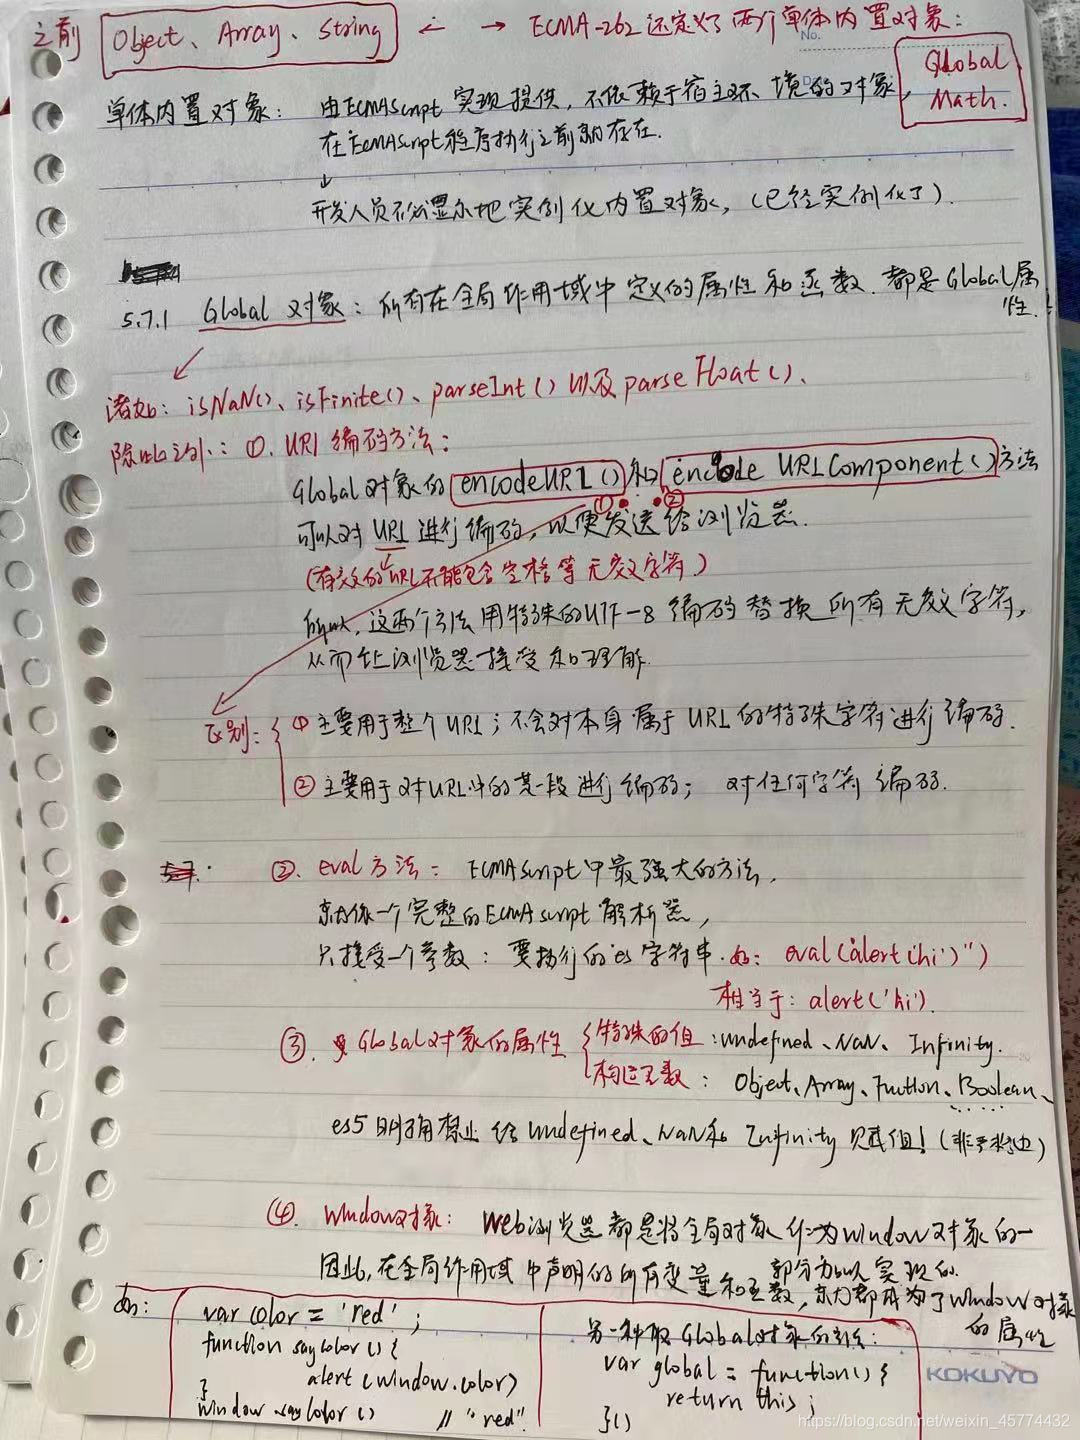 之前 Object、Array、String ← → ECMA-262还定义了两个单体内置对象:
No.
Global
Math.
单体内置对象: 由ECMAScript实现提供,不依赖于宿主环境的对象,
在ECMAScript程序执行之前就存在.
↓
开发人员不必显示地实例化内置对象,(已经实例化了).
5.7.1 Global 对象:所有在全局作用域中定义的属性和函数.都是Global属
性.
诸如: isNaN()、isFinite()、parseInt()以及parseFloat()、
除此之外:①. URI 编码方法:
Global对象的 encodeURI() 和 encode URIComponent() 方法
① ②
可以对URI进行编码,以便发送给浏览器.
(有效的URI不能包含空格等无效字符.)
这两个方法用特殊的UTF-8编码替换所有无效字符,
从而让浏览器接受和理解.
区别: ① 主要用于整个URI;不会对本身属于URI的特殊字符进行编码.
② 主要用于对URI中的某一段进行编码; 对任何字符编码.
5.7.
②. eval方法: ECMAScript中最强大的方法,
就像一个完整的ECMAScript解析器,
只接受一个参数:要执行的es字符串.如: eval("alert('hi')")
相当于: alert('hi').
③. Global对象的属性 特殊的值:undefined、NaN、Infinity.
构造函数: Object、Array、Function、Boolean、
......
es5明确禁止给undefined、NaN和Infinity赋值!(非严格也)
④. window对象: Web浏览器都是将全局对象作为window对象的一
部分加以实现的.
因此,在全局作用域中声明的所有变量和函数,就都成为了window对象
的属性
如:
var color = 'red';
function sayColor() {
alert(window.color)
}
window.sayColor() // "red".
另一种取Global对象的方法:
var global = function() {
return this;
}()
KOKUYO
https://blog.csdn.net/weixin_45774432